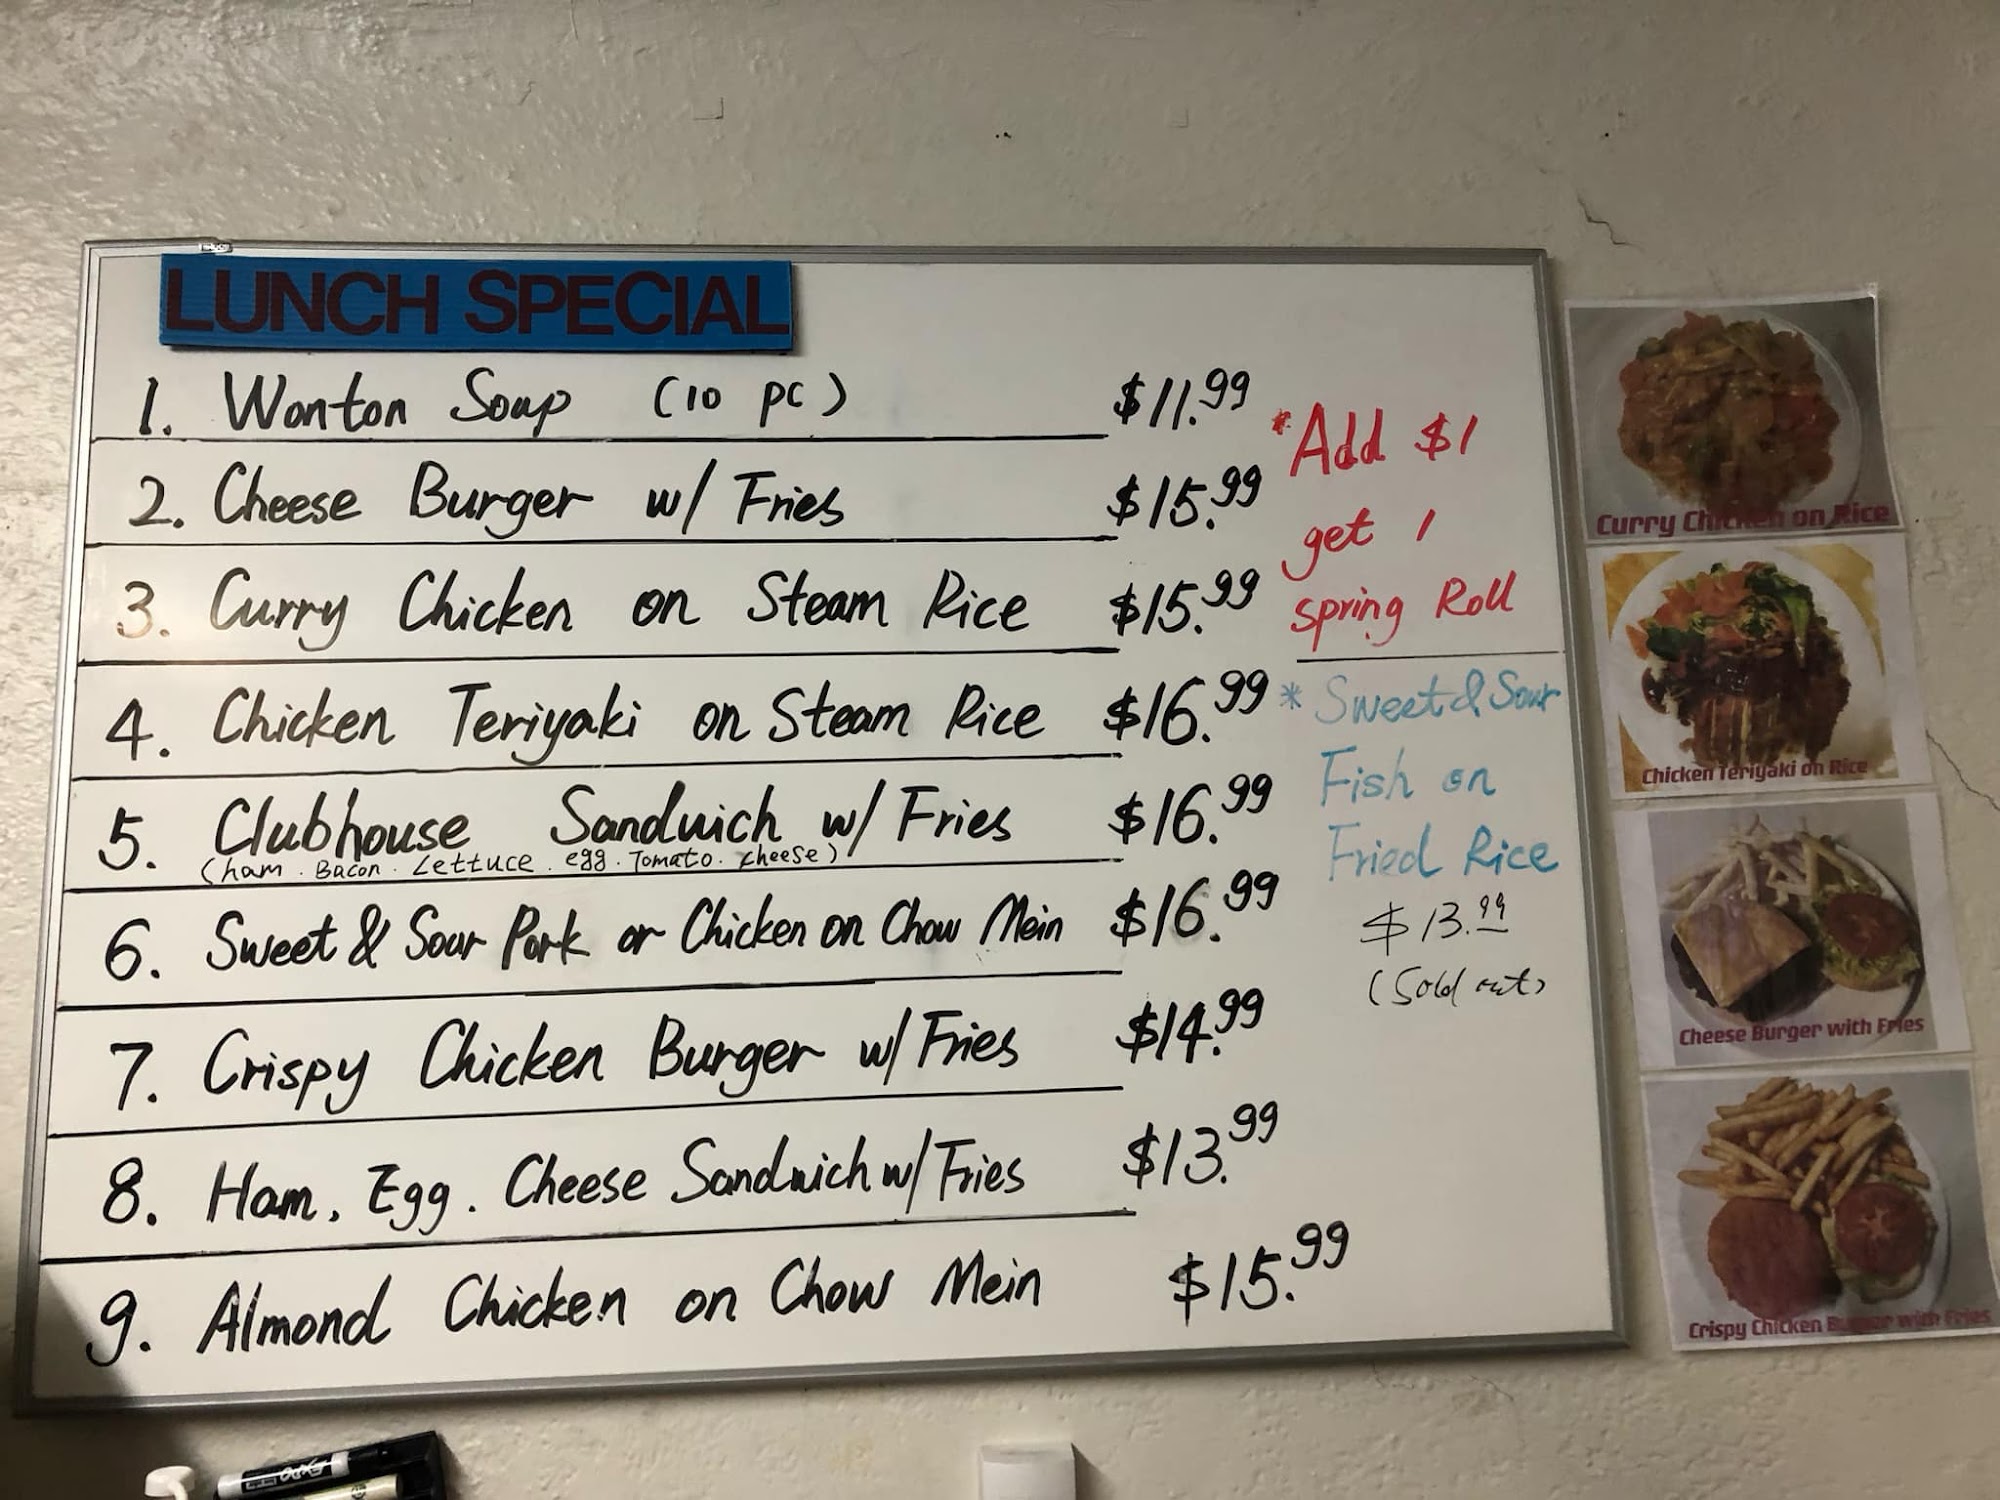 LUNCH SPECIAL
1. Wonton Soup (10 pc) $11.99
2. Cheese Burger w/ Fries $15.99
3. Curry Chicken on Steam Rice $15.99
4. Chicken Teriyaki on Steam Rice $16.99
5. Clubhouse Sandwich w/ Fries $16.99
(ham . Bacon . Lettuce . egg . Tomato . cheese)
6. Sweet & Sour Pork or Chicken on Chow Mein $16.99
7. Crispy Chicken Burger w/ Fries $14.99
8. Ham, Egg. Cheese Sandwich w/ Fries $13.99
9. Almond Chicken on Chow Mein $15.99
*Add $1
get 1
spring Roll
* Sweet & Sour
Fish on
Fried Rice
$13.99
(Sold out)
Curry Chicken on Rice
Chicken Teriyaki on Rice
Cheese Burger with Fries
Crispy Chicken Burger with Fries
EXPO